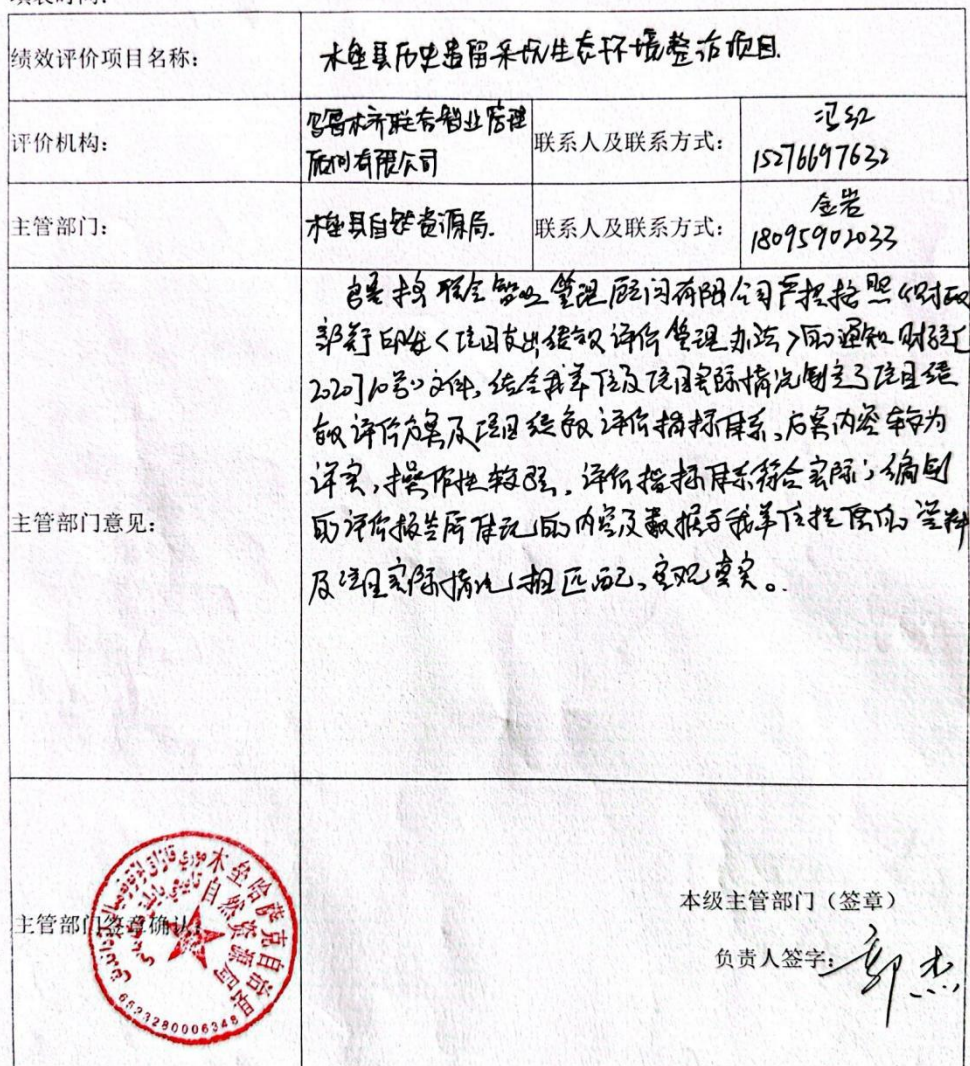 绩效评价项目名称：
木垒县历史遗留采坑生态环境整治项目.
评价机构：
乌鲁木齐联合智业管理
顾问有限公司
联系人及联系方式：
冯红
15276697632
主管部门：
木垒县自然资源局.
联系人及联系方式：
金岩
18095902033
主管部门意见：
乌鲁木齐联合智业管理顾问有限公司严格按照《财政
部关于印发<项目支出绩效评价管理办法>的通知 财预[
2020]10号》文件，结合我单位及项目实际情况制定了项目绩
效评价方案及项目绩效评价指标体系，方案内容较为
详实，操作性较强，评价指标体系符合实际；编制
的评价报告所体现的内容及数据与我单位提供的资料
及项目实际情况相匹配，客观真实。
主管部门签章确认：
木垒哈萨克自治县
自然资源局
6523280006348
本级主管部门（签章）
负责人签字：
郭杰